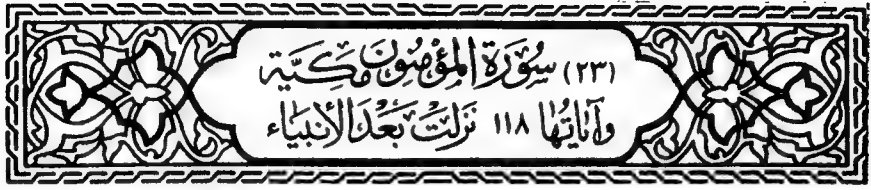 (٢٣) سُوَرة المؤمِنُون مَكيَّة
وَآيَاتُهَا ١١٨ نَزلَتْ بَعْدَ الأنبيَاء